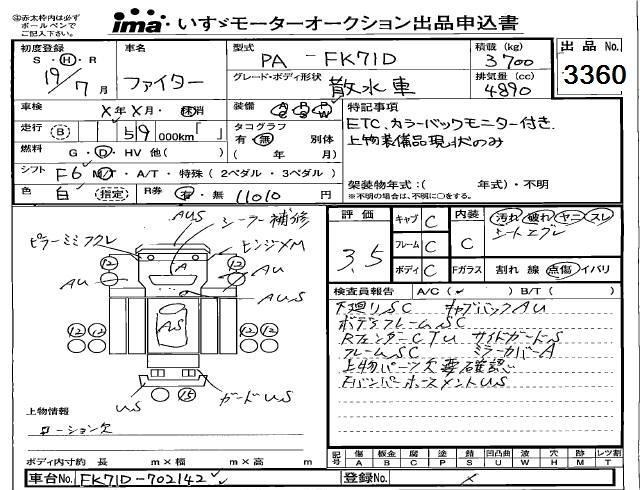 ◎赤太枠内は必ず
ボールペンで
ご記入下さい。
ima いすゞモーターオークション出品申込書
初度登録
S・H・R
19/7月
車名
ファイター
型式
PA - FK71D
グレード・ボディ形状
散水車
積載(kg)
3700
排気量(cc)
4890
出品No.
3360
車検 X年X月・抹消
装備 AC PS PW
走行 (B) 59 000km「 」
タコグラフ
有・無 別体
( 年 月)
燃料 G・D・HV 他( )
シフト F6 M/T・A/T・特殊(2ペダル・3ペダル)
色 白 (指定) R券 有・無 11010 円
特記事項
ETC、カラーバックモニター付き.
上物装備品現状のみ
架装物年式:( 年式)・不明
※不明の場合は、不明に○をする。
評価
3.5
キャブ C
フレーム C
ボディ C
内装
C
Fガラス
汚れ 破れ ヤニ スレ
シートエグレ
割れ 線 点傷 イバリ
検査員報告 A/C(✓) B/T( )
下廻りSC キャブバックAU
ボデーフレームSC
RフェンダーCTU サイドガードS
フレームSC ミラーカバーA
上物パーツ欠要確認
FバンパーホースメントUS
AUS
シーラー補修
ピラーミミフクレ
ヒンジメM
12
12
A
AU
AU
AUS
AS
12 12
12 12
US
15
ガードUS
上物情報
ローション欠
ボディ内寸約 長 m×幅 m×高 m
記号
傷 A
板金 B
腐 C
塗 P
錆 S
凹凸曲 U
波 W
穴 H
跡 M
レツ割 T
車台No. FK71D-702142
登録No. X